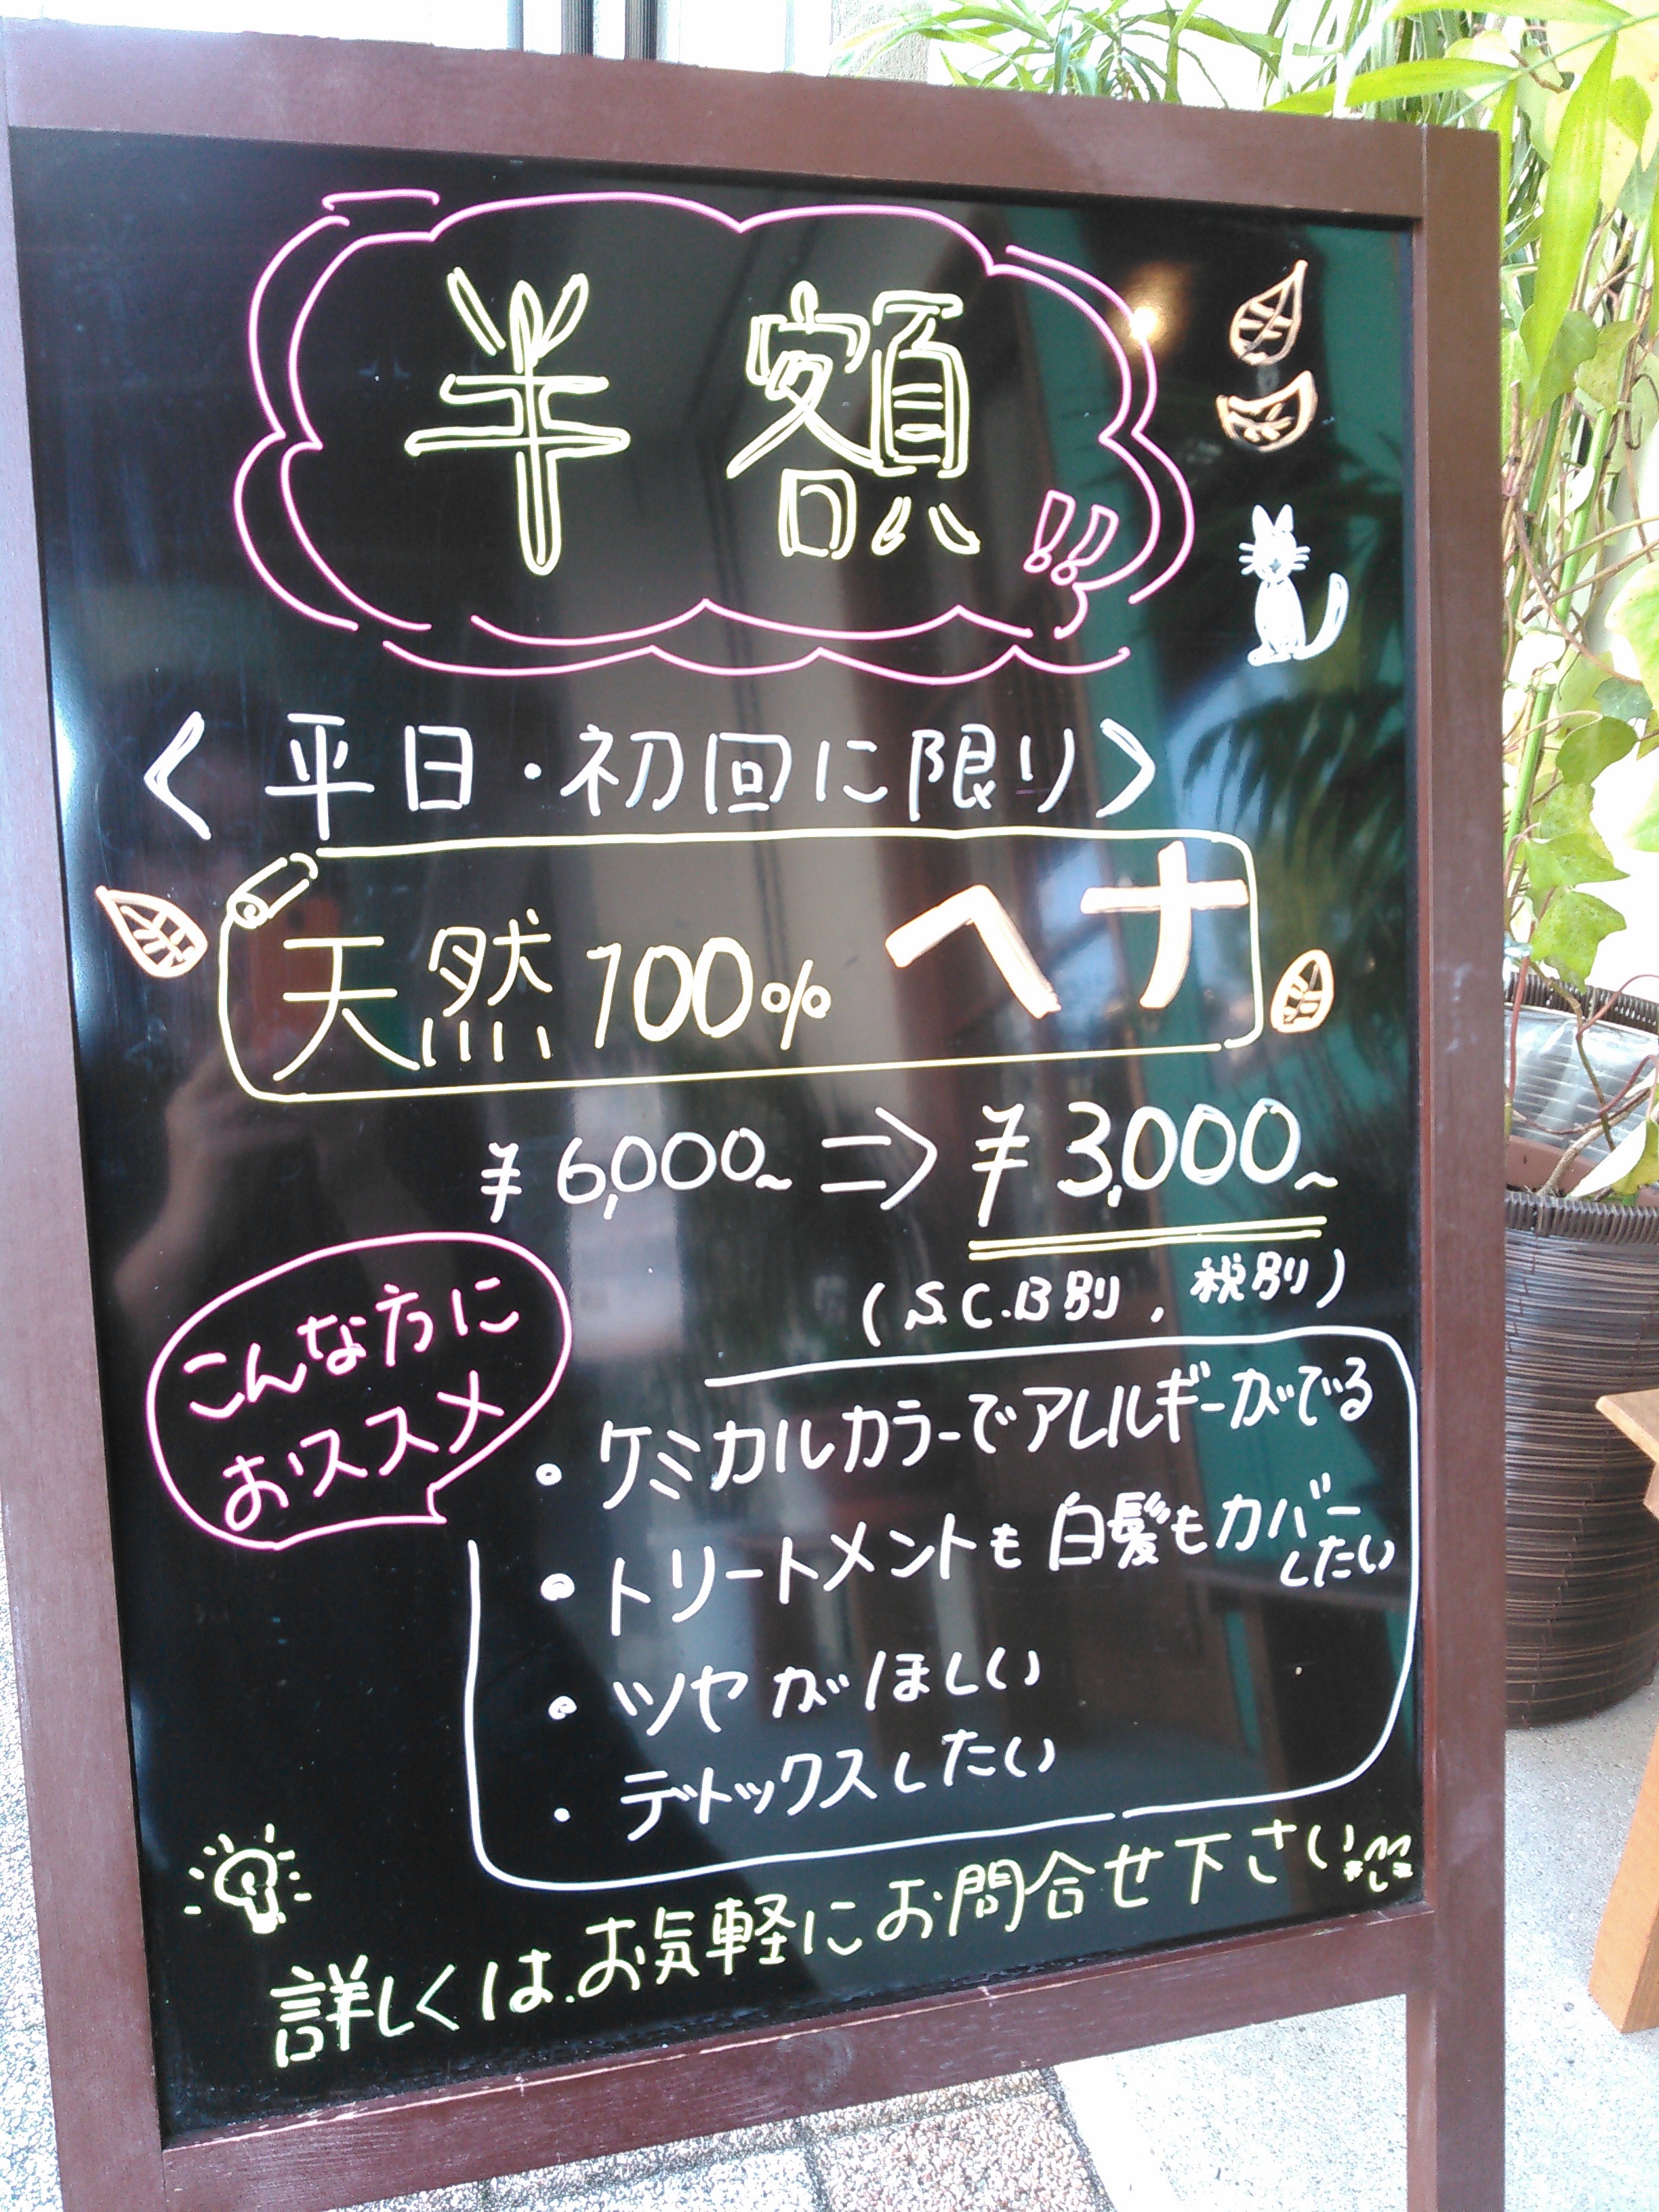 半額!!
<平日・初回に限り>
天然100%ヘナ
¥6,000~⇒¥3,000~
(S.C.B別,税別)
こんな方に
おススメ
・ケミカルカラーでアレルギーがでる
・トリートメントも白髪もカバー
したい
・ツヤがほしい
・デトックスしたい
詳しくは.お気軽にお問合せ下さい